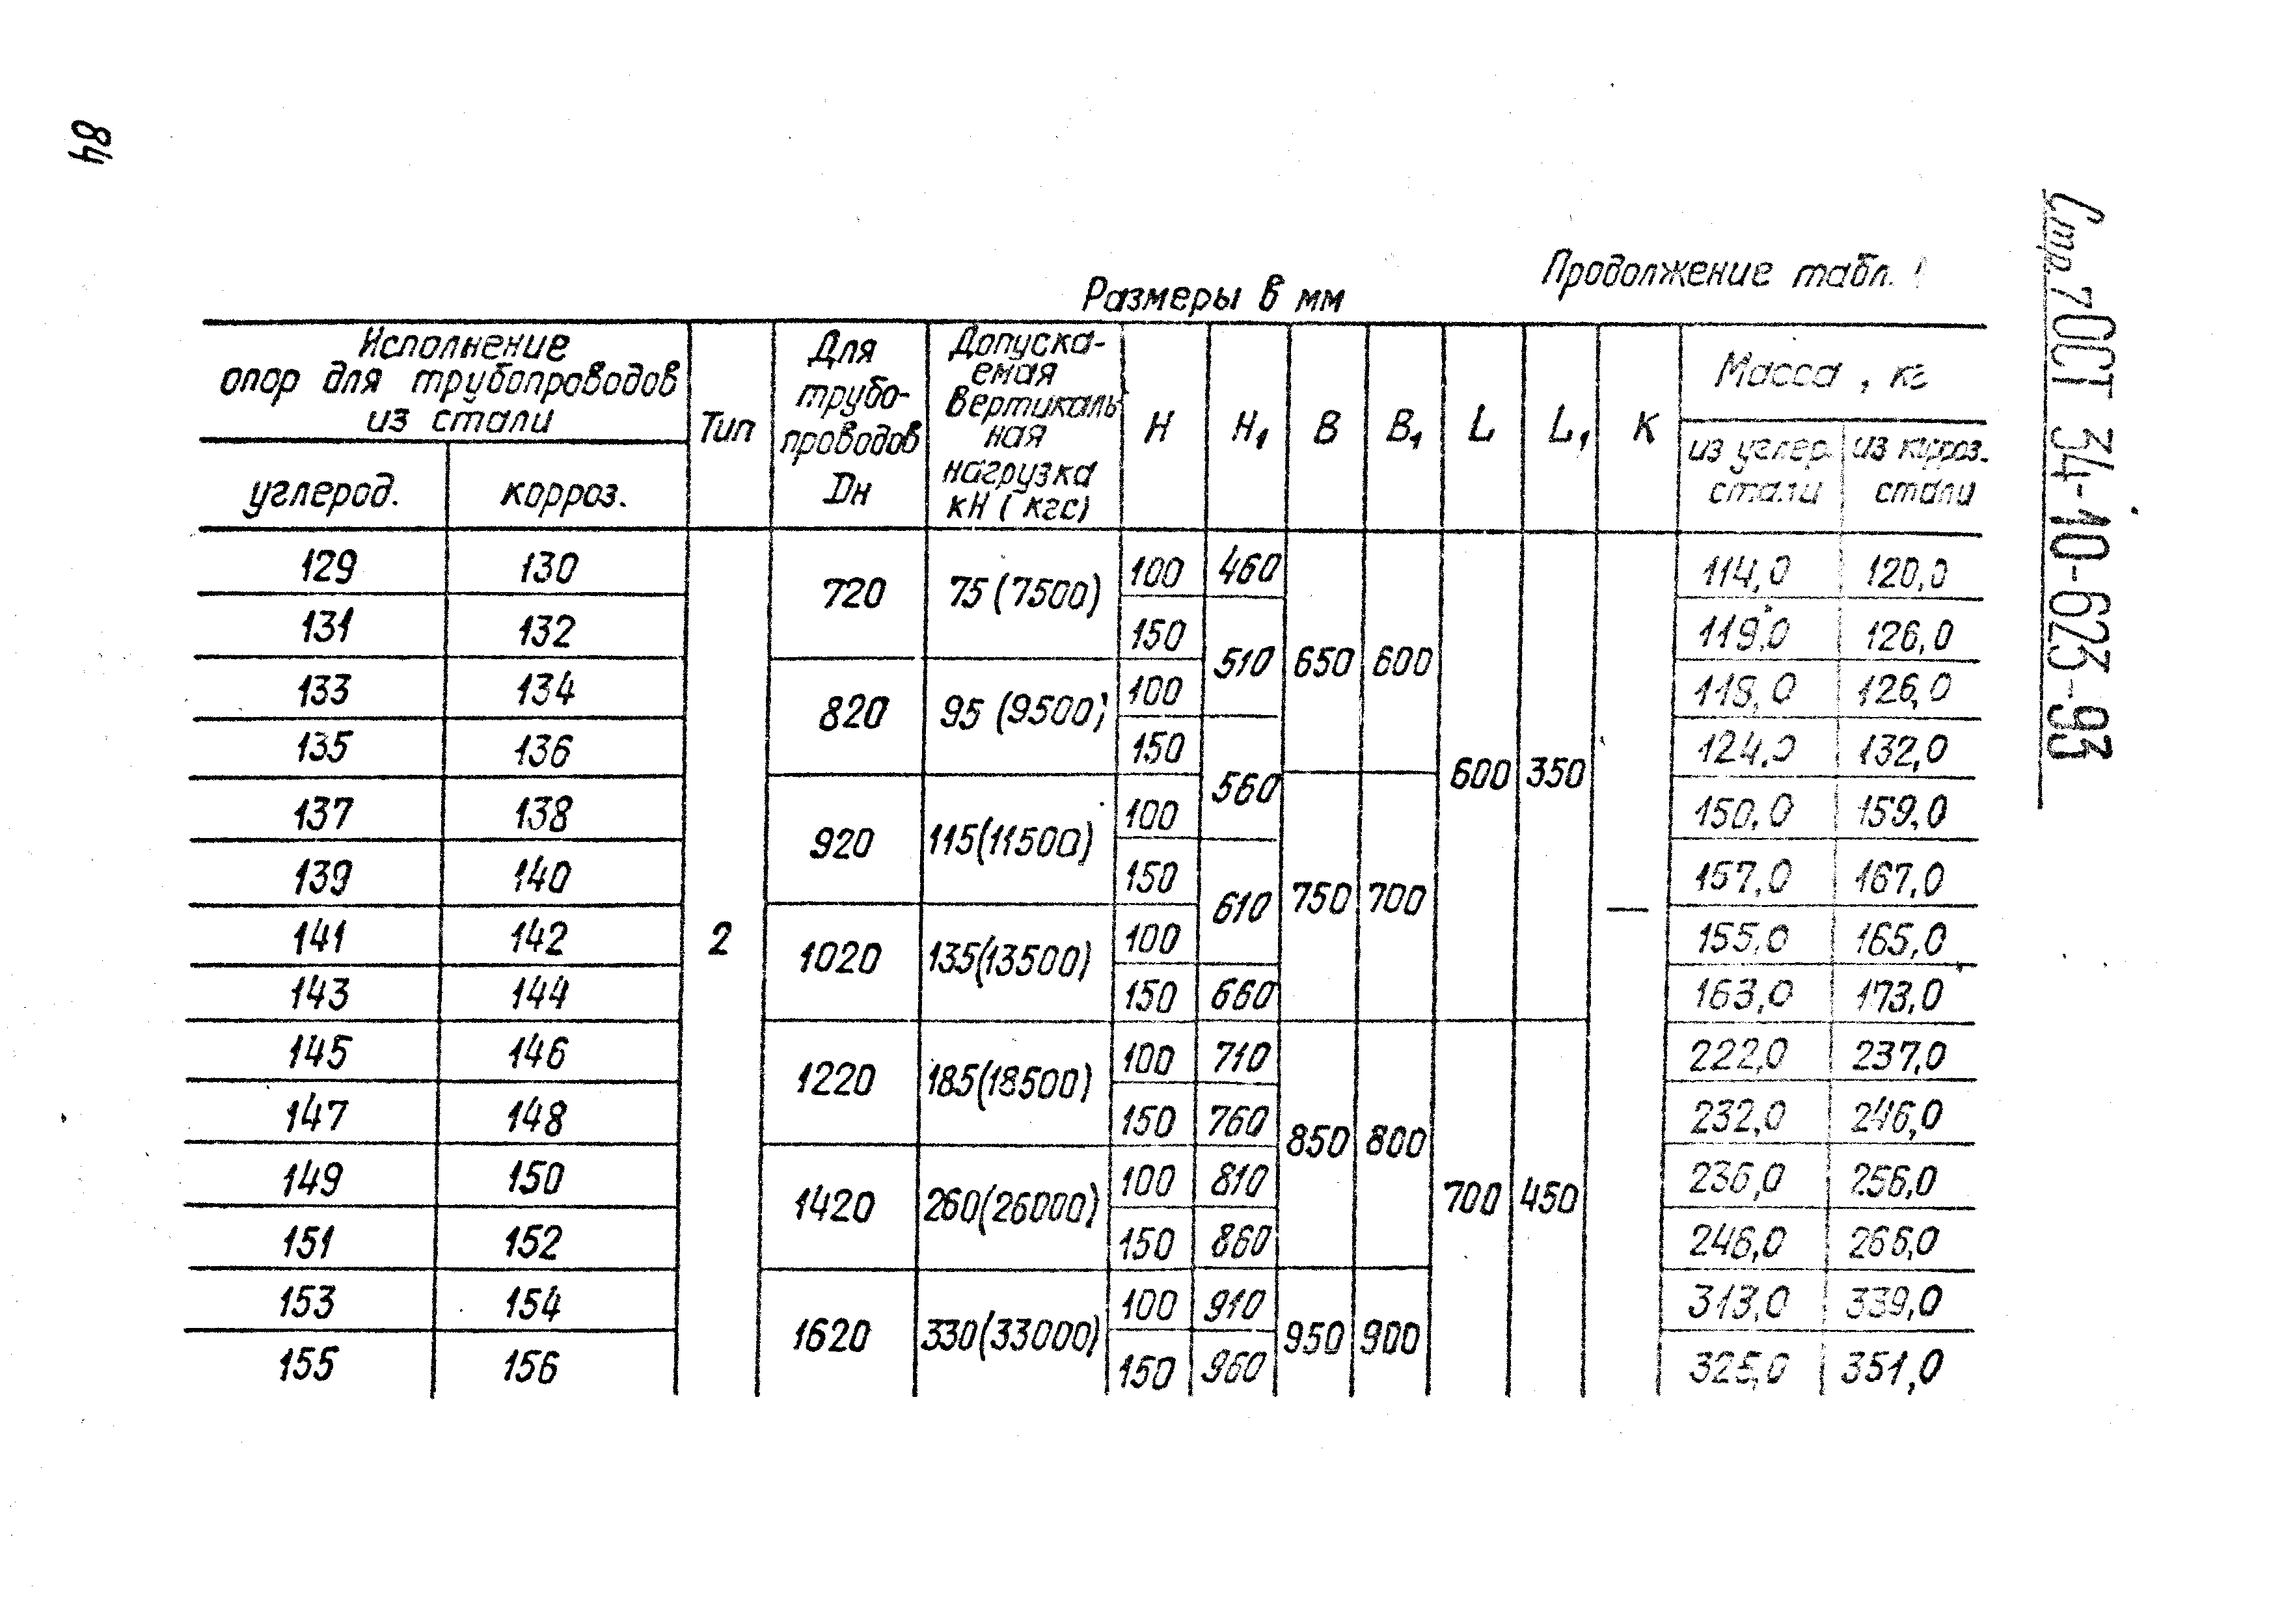 84
Стр. 7 ОСТ 34-10-623-93
Продолжение табл. 1
Размеры в мм
Исполнение опор для трубопроводов из стали | Тип | Для трубо- проводов Dн | Допуска- емая вертикаль ная нагрузка кН (кгс) | H | H1 | B | B1 | L | L1 | K | Масса, кг
углерод. | корроз. | из углер. стали | из корроз. стали
129 130 2 720 75 (7500) 100 460 650 600 600 350 — 114,0 120,0
131 132 150 510 119,0 126,0
133 134 820 95 (9500) 100 118,0 126,0
135 136 150 560 124,0 132,0
137 138 920 115(11500) 100 750 700 150,0 159,0
139 140 150 610 157,0 167,0
141 142 1020 135(13500) 100 155,0 165,0
143 144 150 660 163,0 173,0
145 146 1220 185(18500) 100 710 850 800 700 450 222,0 237,0
147 148 150 760 232,0 246,0
149 150 1420 260(26000) 100 810 236,0 256,0
151 152 150 860 246,0 266,0
153 154 1620 330(33000) 100 910 950 900 313,0 339,0
155 156 150 960 325,0 351,0